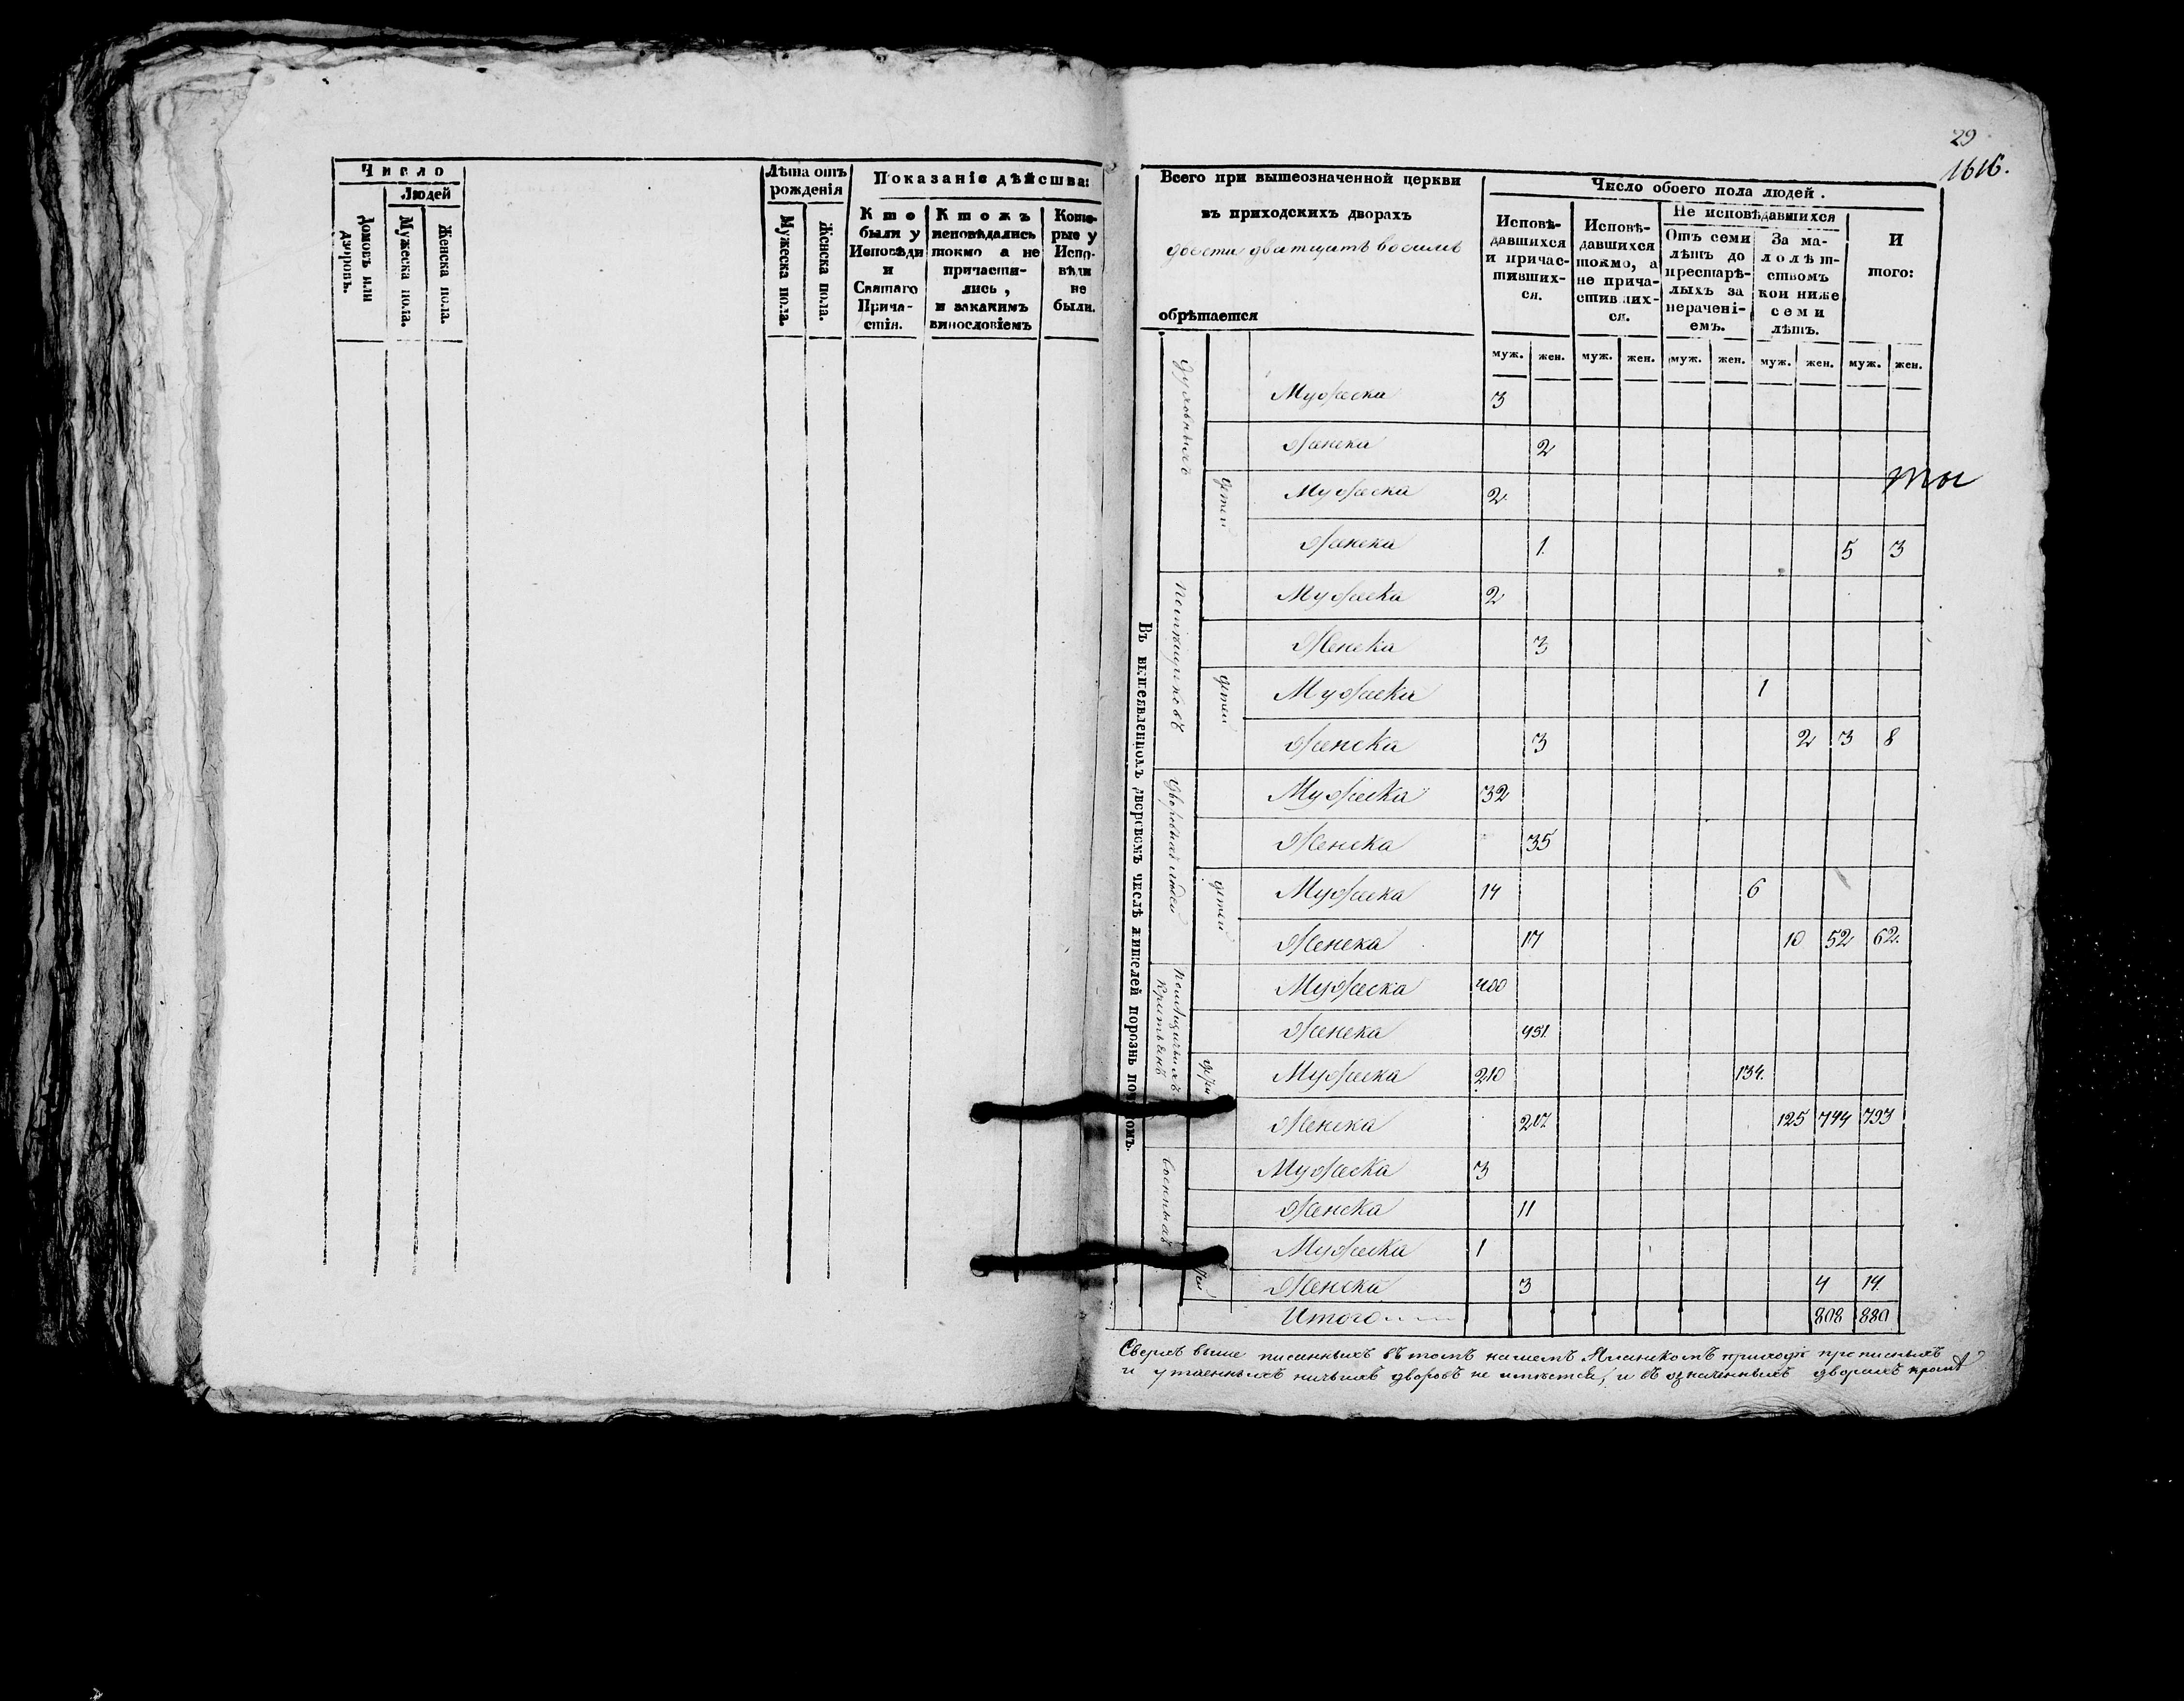 Число
Людей
Домовъ или дворовъ.
Мужеска пола.
Женска пола.
Лѣта отъ рожденія
Мужеска пола.
Женска пола.
Показаніе дѣйства:
Кто были у Исповѣди и Святаго Причастія.
Ктожъ исповѣдались токмо а не причастились, и закакимъ винословіемъ
Которые у Исповѣди не были.
29
1616.
Всего при вышеозначенной церкви
въ приходскихъ дворахъ
двести дватцать восемь
обрѣтается
Число обоего пола людей.
Исповѣдавшихся и причастившихся.
Исповѣдавшихся токмо, а не причастившихся.
Не исповѣдавшихся
Отъ семи лѣтъ до престарѣлыхъ за нерачені-емъ.
За малолѣтствомъ кои ниже семи лѣтъ.
И того:
муж. жен. муж. жен. муж. жен. муж. жен. муж. жен.
Въ вышеявленномъ дворовомъ числѣ жителей порознь
Духовныхъ
Мужеска 3
Женска 2
детей
Мужеска 2
Женска 1. 5 3
Помѣщиковъ
Мужеска 2
Женска 3
детей
Мужеска 1
Женска 3 2 3 8
Дворовыхъ людей
Мужеска 32
Женска 35
детей
Мужеска 14 6
Женска 17 10 52 62.
Помѣщичьихъ Крестьянъ
Мужеска 400
Женска 451.
Мужеска 210 134.
Женска 217 125 744 793
Военныхъ
Мужеска 3
Женска 11
Мужеска 1
Женска 3 4 14.
Итого 808 880
Сверхъ выше писанныхъ въ томъ нашемъ приходѣ прописныхъ
и утаенныхъ ничьихъ дворовъ не имѣется, и въ означенныхъ дворахъ кромѣ